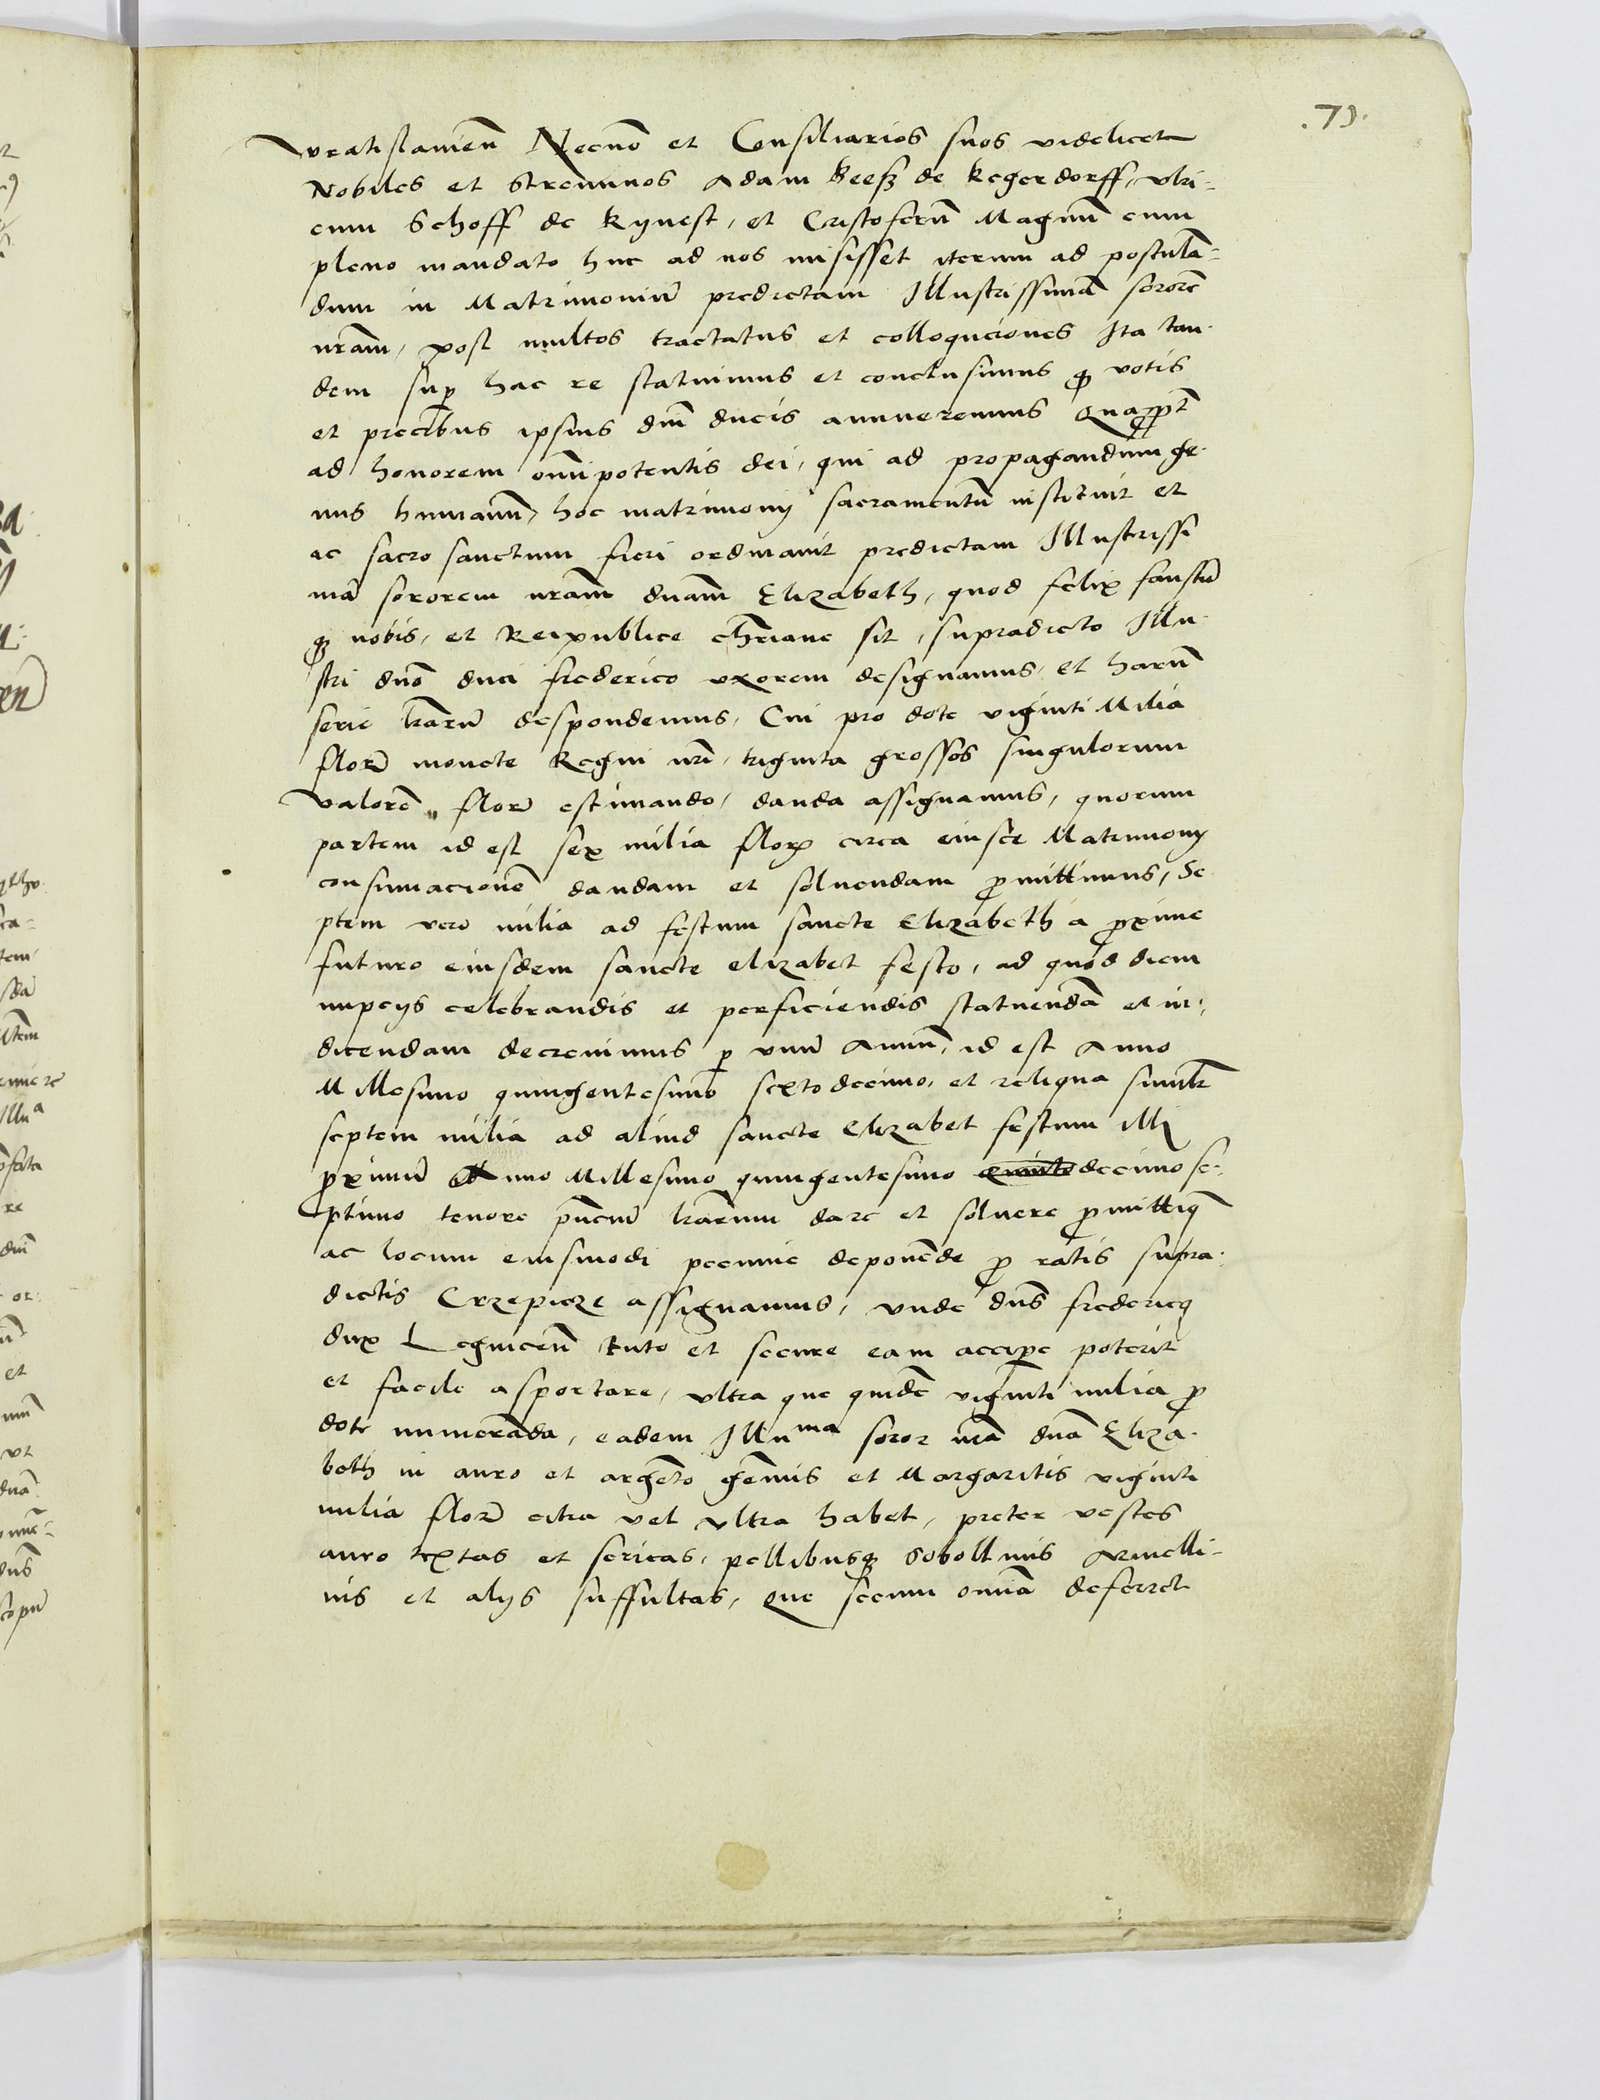 .79.
vratislavien̄ Necnō et Consiliarios suos videlicet
Nobiles et Strennuos Adam Beesz de kegerdorff, vlri-
cum Schoff de kynest, et Cristoferū Magnū cum
pleno mandato huc ad nos misisset iterum ad postulā-
dum in Matrimoniū predictam Illustrissimā sororē
nrām, post multos tractatus et colloquciones Ita tan-
dem sup hac re statuimus et conclusimus q votis
et precibus ipsius dnī ducis annueremus Quappt
ad honorem omīpotentis dei, qui ad propagandum ge-
nus humanū, hoc matrimonij sacramentū instituit et
ac sacro sanctum fieri ordinavit predictam Illustrissi
mā sororem nrām dnām Elizabeth, quod felix faustū
qz nobis, et Reipublice chrīane sit, supradicto Illu-
stri dnō duci frederico vxorem designamus, et harū
serie lrārū despondemus, Cui pro dote viginti Milia
florē monete Regni nrī, triginta grossos singulorum
valorē florē estimando, danda assignamus, quorum
partem id est sex milia florē circa eiusce Matrimonij
consumacionē dandam et soluendam pmittimus, Se
ptem vero milia ad festum sancte Elizabeth a pxime
futuro eiusdem sancte elizabet festo, ad quod diem
nupcijs celebrandis et perficiendis statuendā et in-
dicendam decreuimus p vnū Annū, id est Anno
Millesimo quingentesimo sextodecimo, et reliqua simīlr
septem milia ad aliud sancte Elizabet festum illi
pximū Anno Millesimo quingentesimo quinto decimo se-
ptimo tenore pn̄ciū lrārum dare et soluere pmittiq
ac locum eiusmodi pecunie deponēde p ratis supra-
dictis Crzepicze assignamus, vnde dns fredericq
dux Legnicen̄ tuto et secure eam accipe poterit
et facile asportare, vltra que quidē viginti milia p
dote numerāda, eadem Illuma soror nrā dnā Eliza-
beth in auro et argēto gēmis et Margaritis viginti
milia florē citra vel vltra habet, preter vestes
auro textas et sericas, pellibusqz Sobollinis Armelli-
nis et alijs suffultas, Que secum omīa deferret